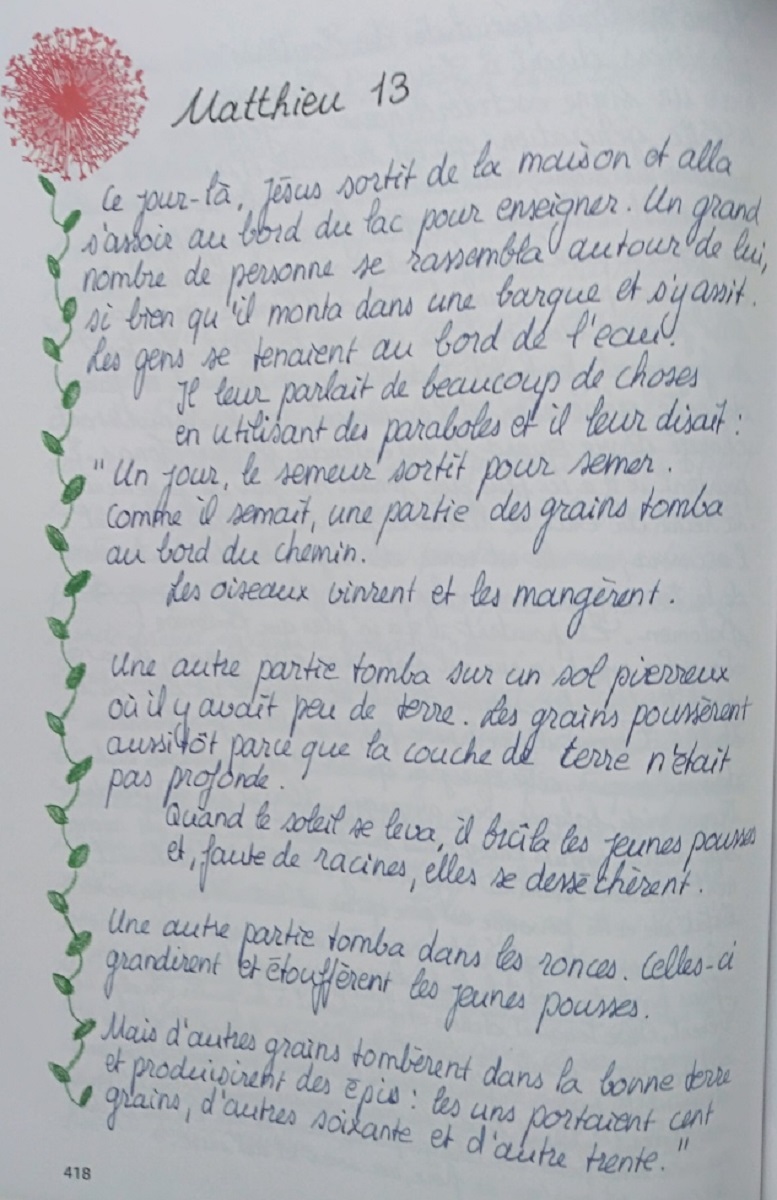 Matthieu 13
Ce jour-là, Jésus sortit de la maison et alla
s'assoir au bord du lac pour enseigner. Un grand
nombre de personne se rassembla autour de lui,
si bien qu'il monta dans une barque et s'y assit.
Les gens se tenaient au bord de l'eau.
Il leur parlait de beaucoup de choses
en utilisant des paraboles et il leur disait :
"Un jour, le semeur sortit pour semer.
Comme il semait, une partie des grains tomba
au bord du chemin.
Les oiseaux vinrent et les mangèrent.
Une autre partie tomba sur un sol pierreux
où il y avait peu de terre. Les grains poussèrent
aussitôt parce que la couche de terre n'était
pas profonde.
Quand le soleil se leva, il brûla les jeunes pousses
et, faute de racines, elles se desséchèrent.
Une autre partie tomba dans les ronces. Celles-ci
grandirent et étouffèrent les jeunes pousses.
Mais d'autres grains tombèrent dans la bonne terre
et produisirent des épis : les uns portaient cent
grains, d'autres soixante et d'autre trente."
418